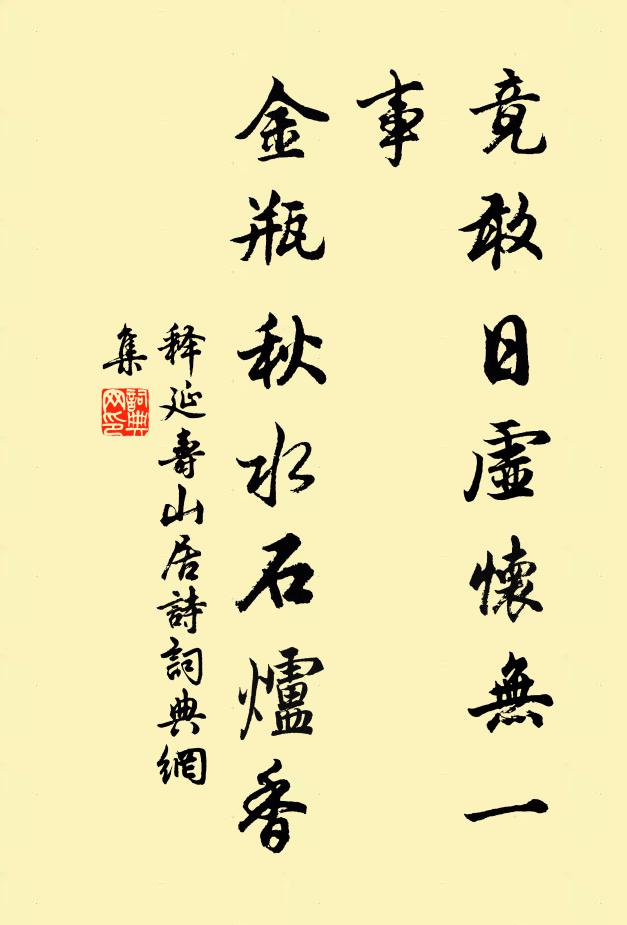 竟敢日虛懷無一
事
金瓶秋水石爐香
释延壽山居詩詞典網
集
詞典網印